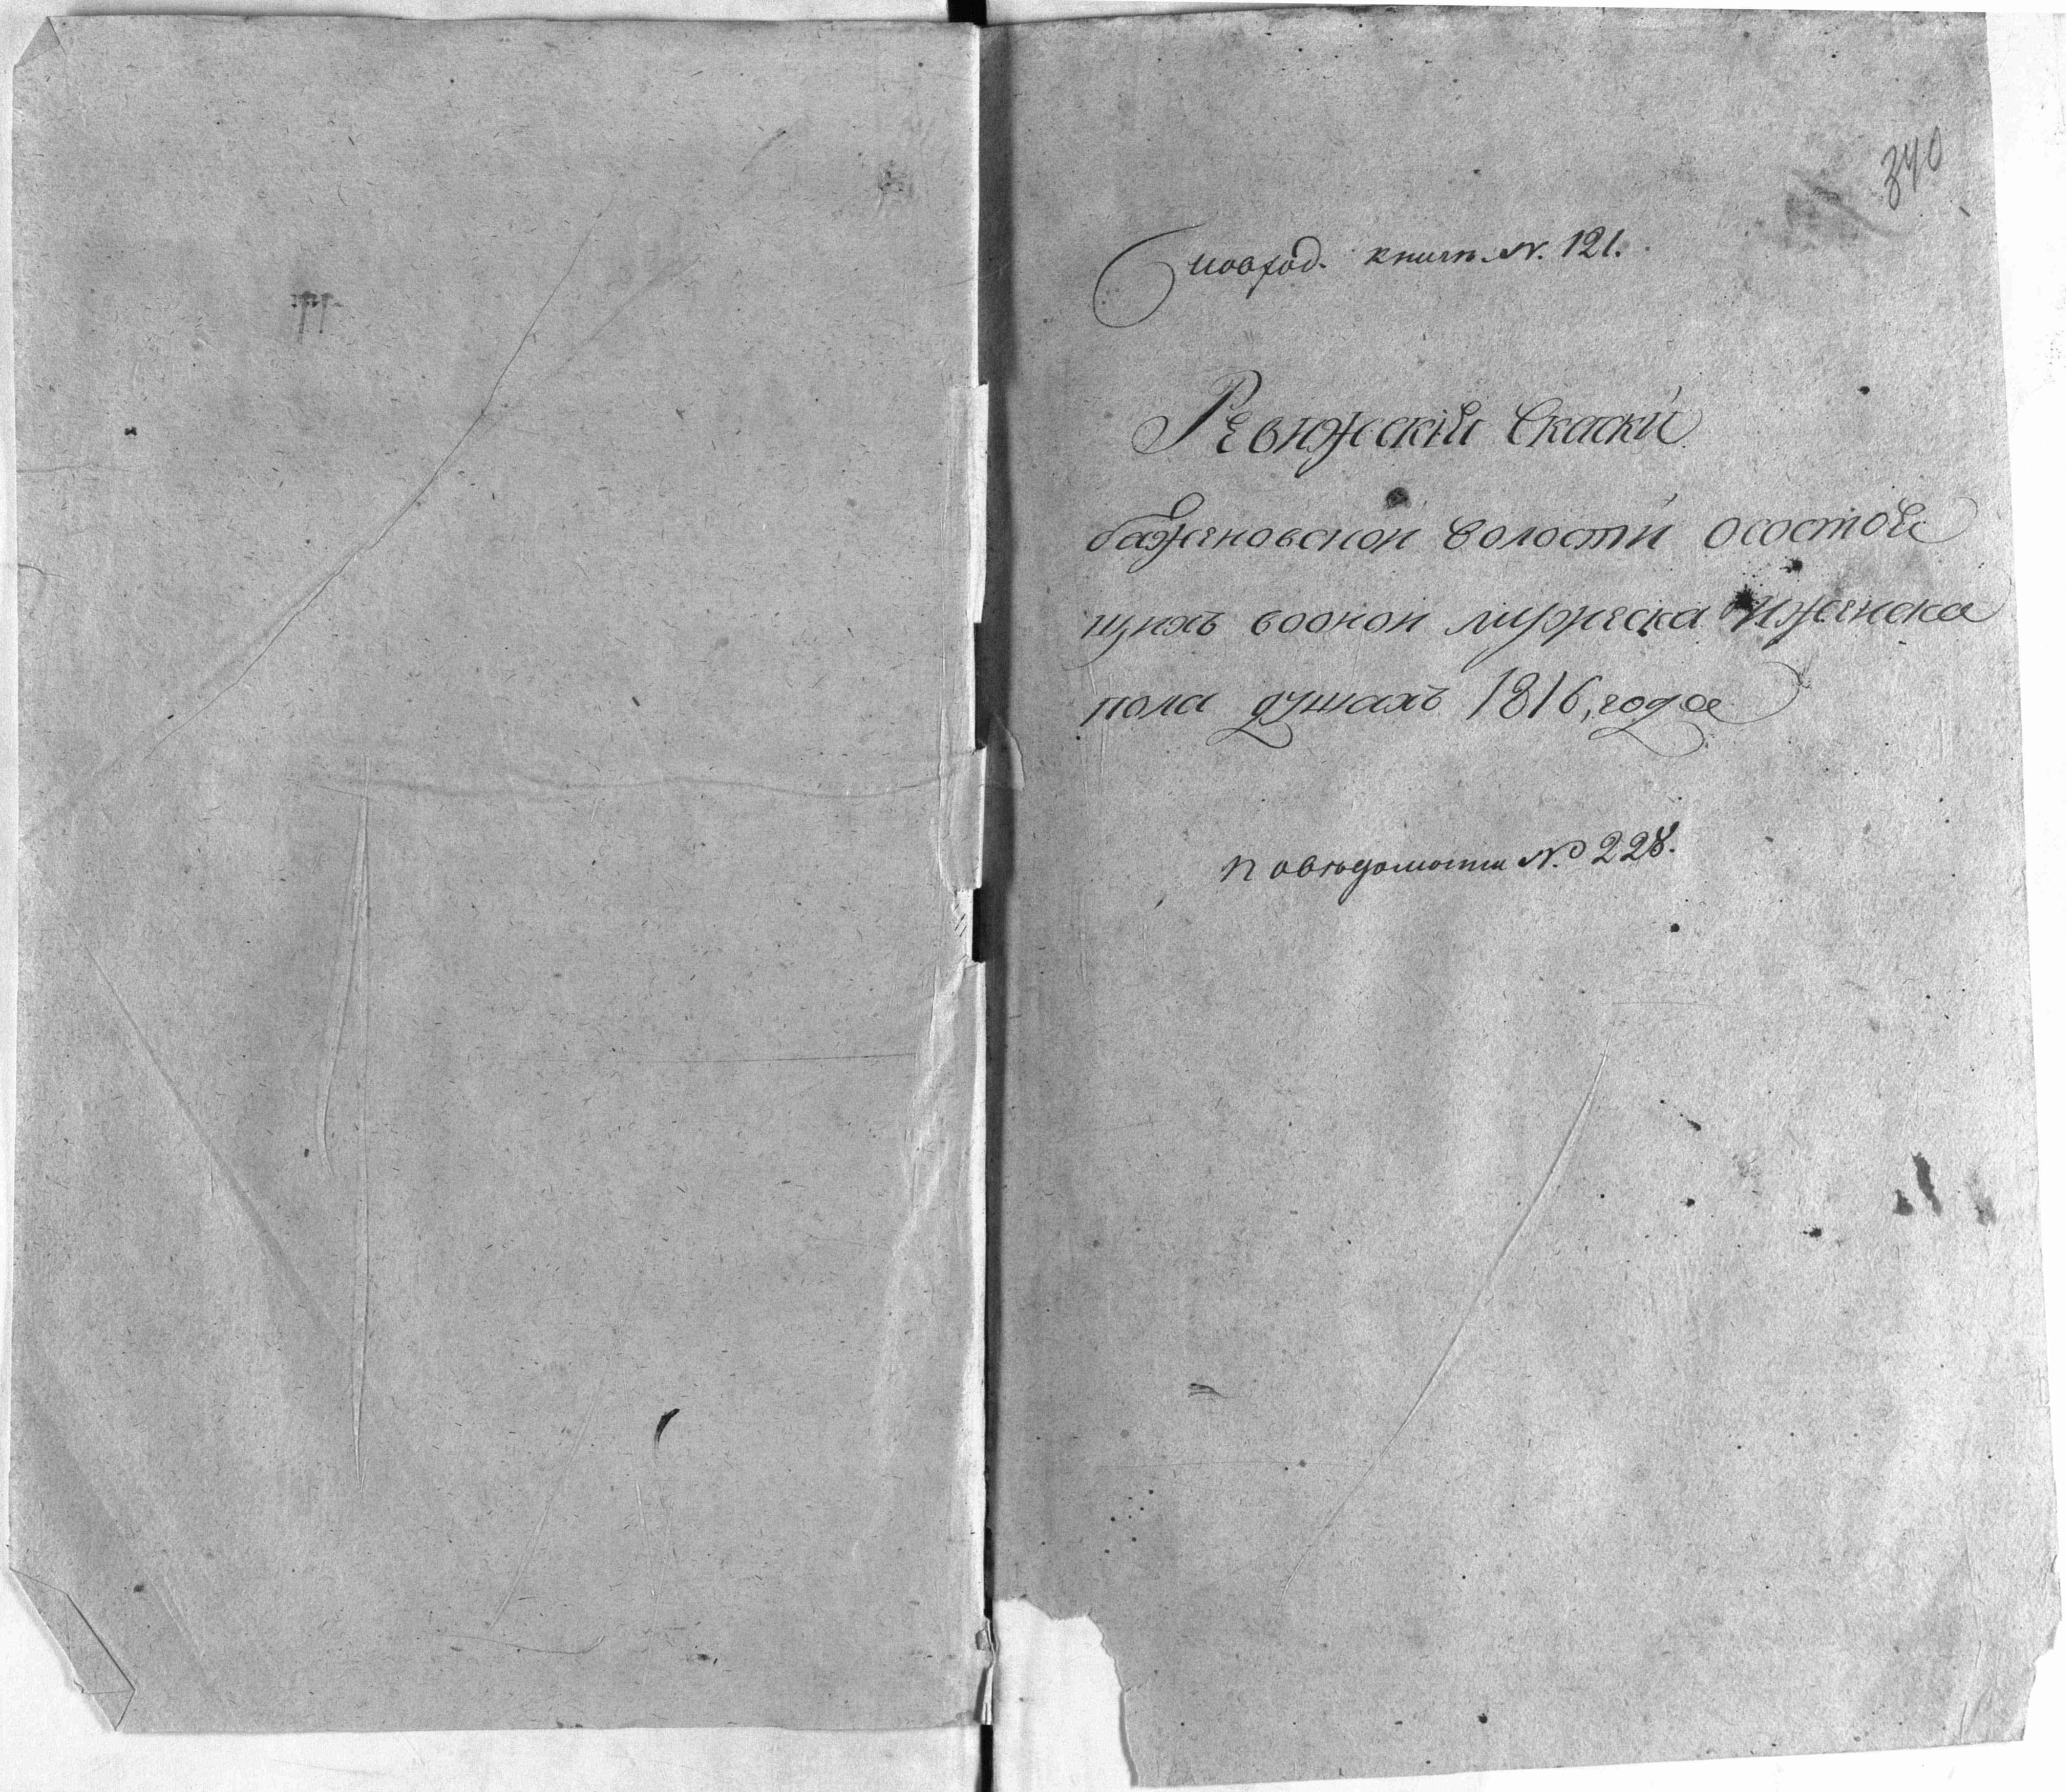 340
по вход. книги №. 121.
Ревижскiя Скаски
бажѣновской волости осостоя
щихъ вооной мужеска Иженска
пола душахъ 1816, года
по вѣдомости №. 228.